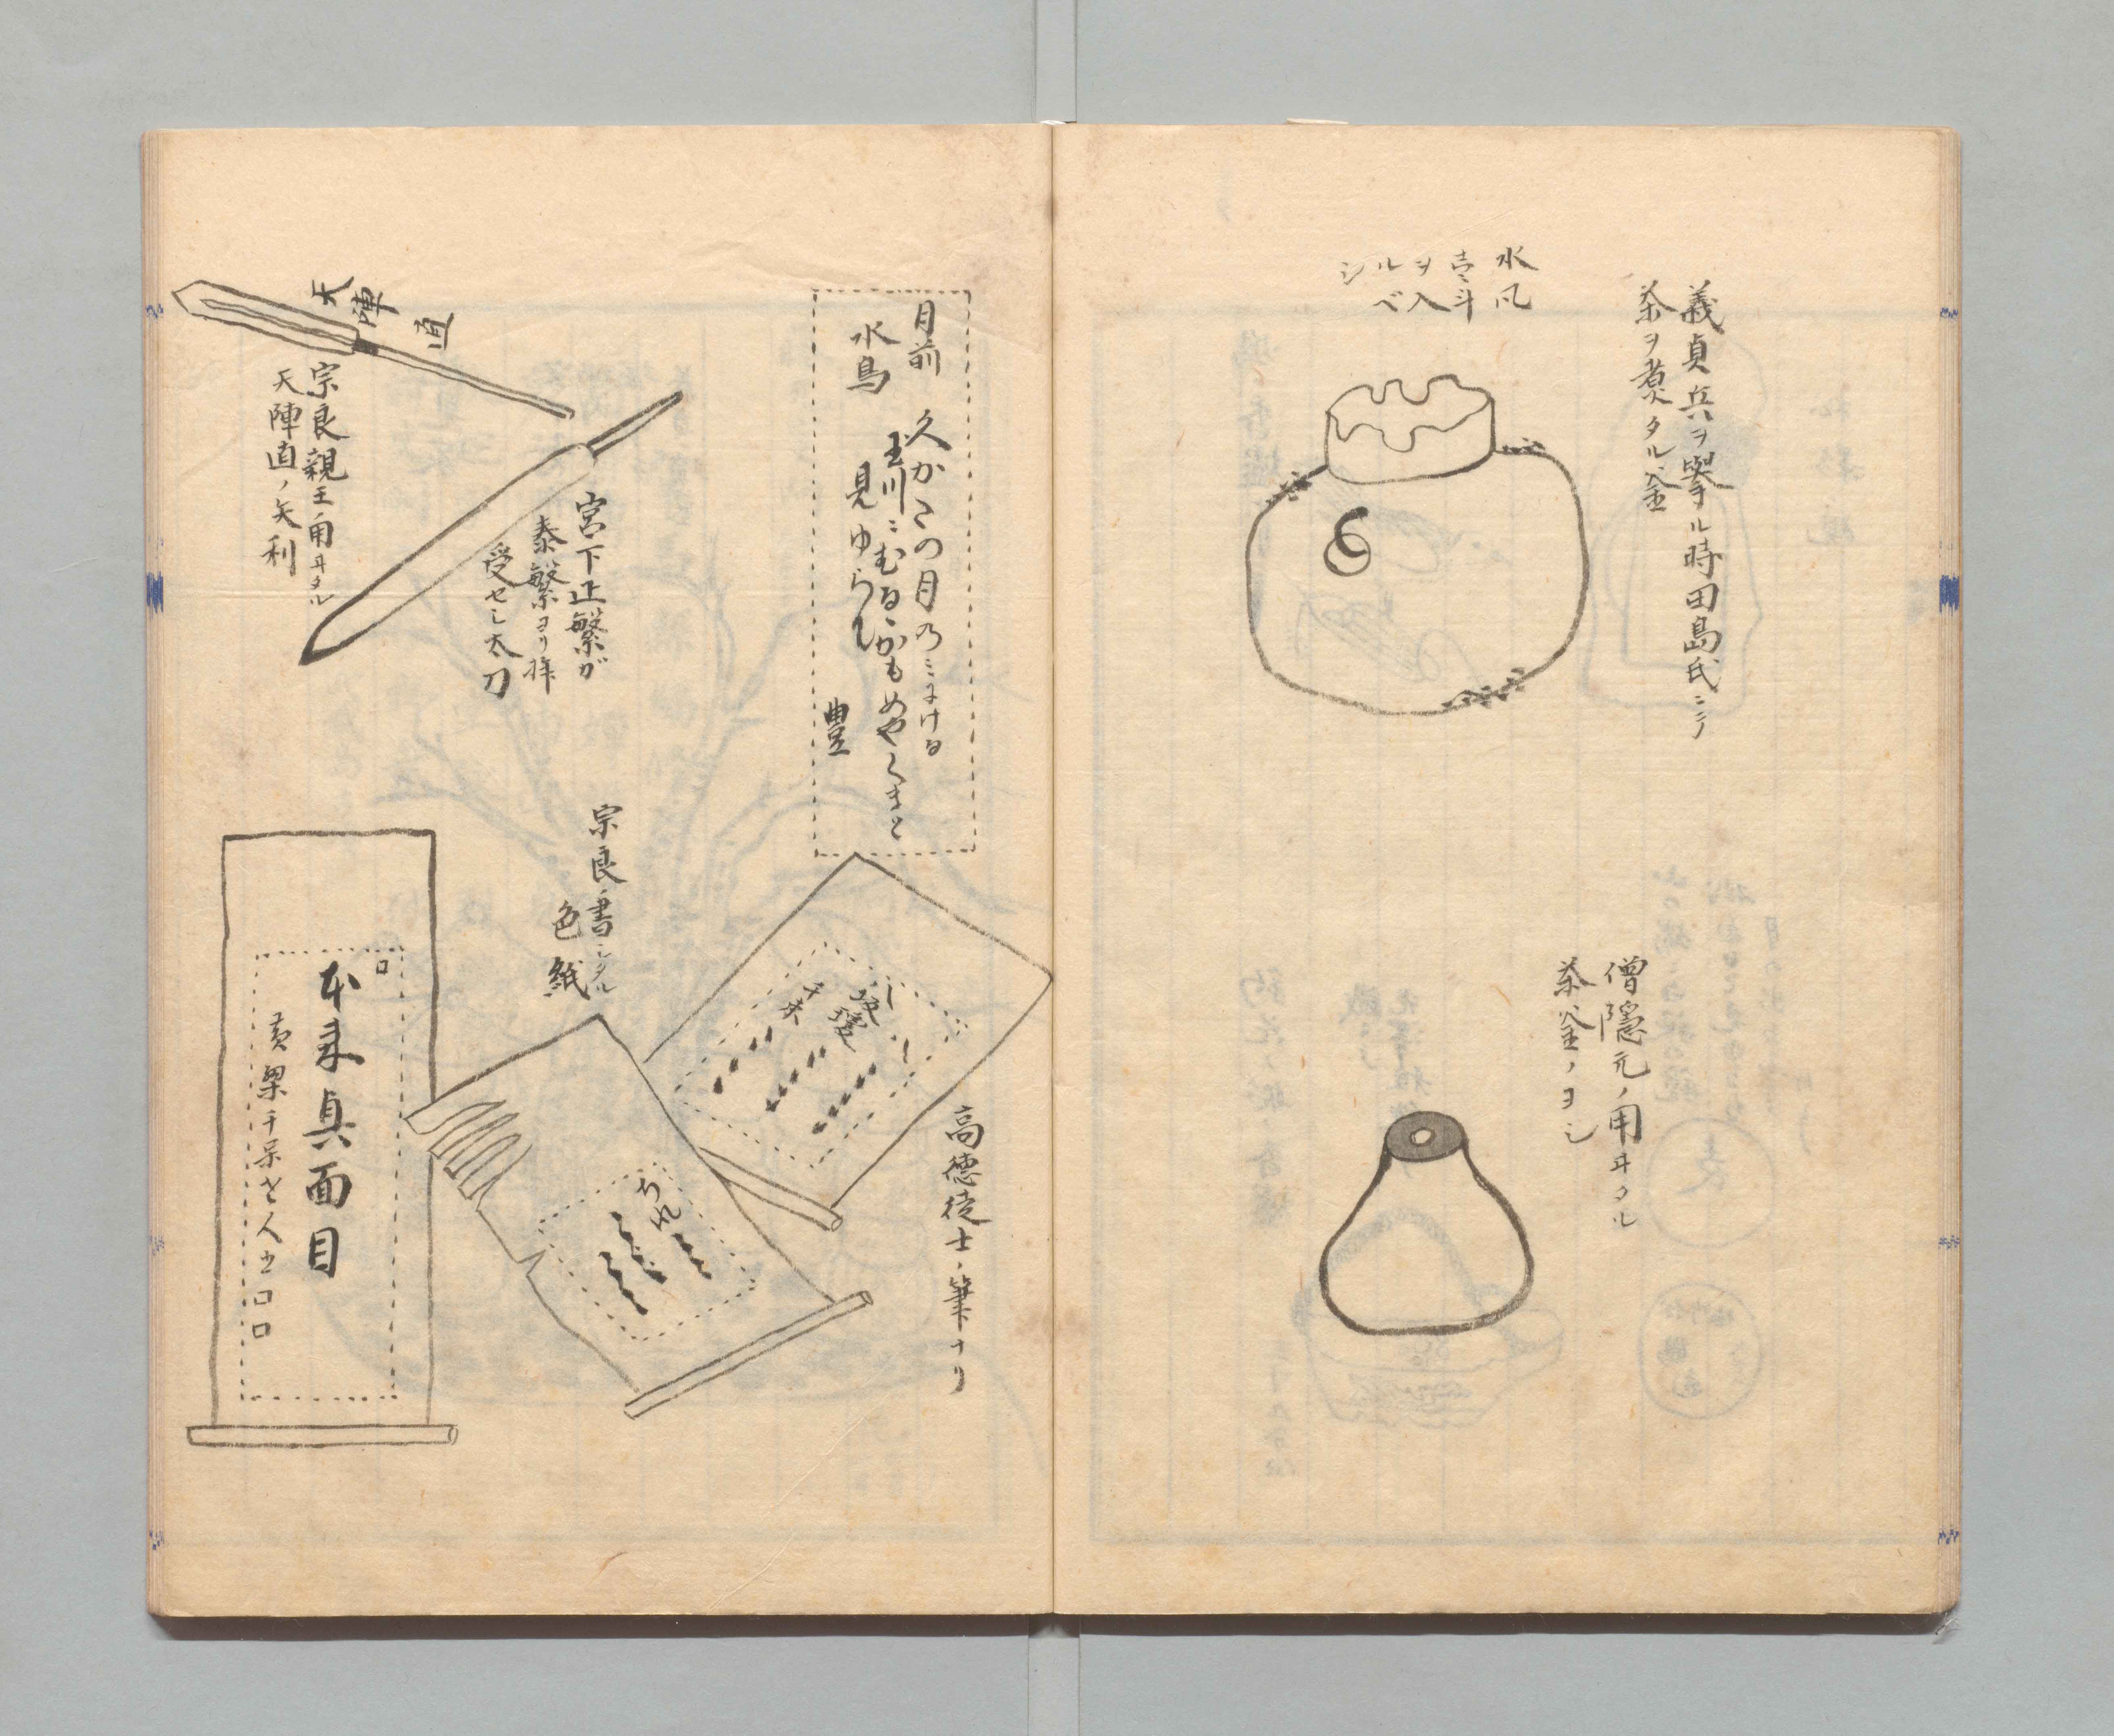 義貞兵ヲ擧ル時田島氏ニテ
茶ヲ煮タル釜
水凡
壱斗
ヲ入
ルベ
シ
僧隠元ノ用ヰタル
茶釜ノヨシ
月前
水鳥
久かたの月の
玉川にむるゝかもめや
見ゆらむ
豊
高徳徒士ノ筆ナリ
宗良ノ書シタル
色紙
宮下正繁が
泰繁ヨリ拝
受セし太刀
天陣直
宗良親王用ヰタル
天陣直ノ矢利
本来真面目